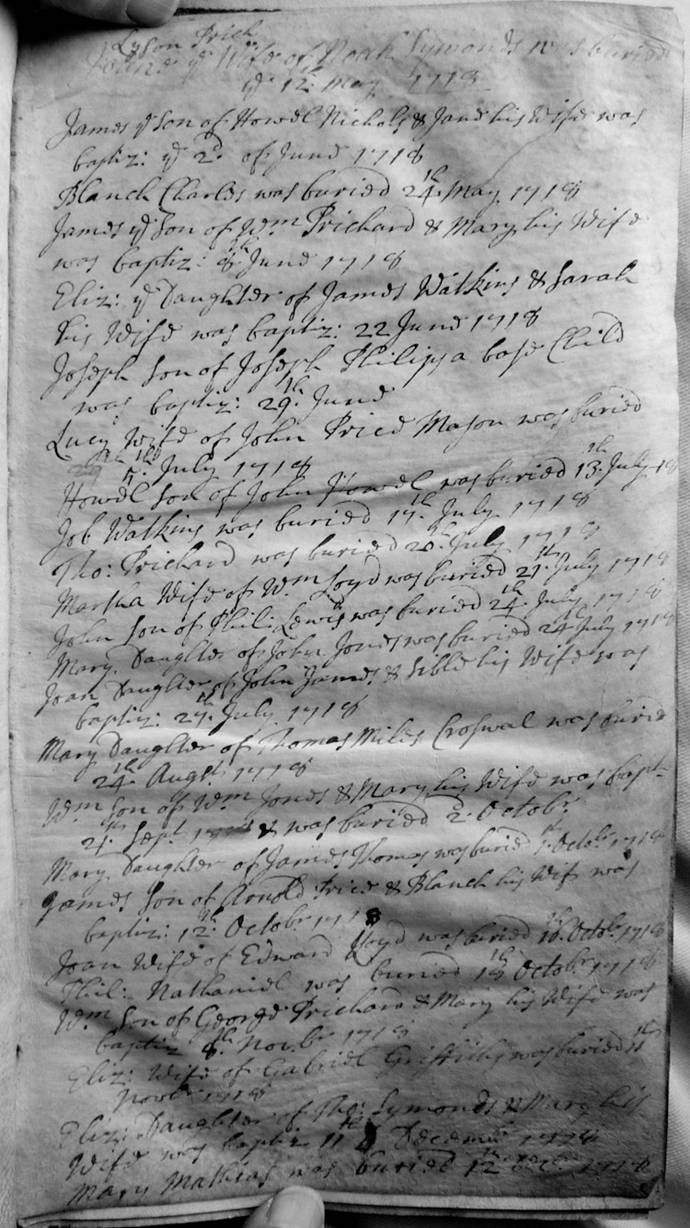 Wife of Noah Symonds was buried
ye 12th May 1718
James ye Son of Howel Nichols & Jane his Wife was
baptiz: ye 2d of June 1718
Blanch Charles was buried 24th May 1718
James ye Son of Wm Prichard & Mary his Wife
was baptiz: 8th June 1718
Eliz: ye Daughter of James Watkins & Sarah
his Wife was baptiz: 22 June 1718
Joseph Son of Joseph Philips a base Child
was baptiz: 29th June
Lucy Wife of John Price Mason was buried
July 1718
Howel Son of John Howel was buried 13th July 18
Job Watkins was buried 17th July 1718
Tho: Prichard was buried 20th July 1718
Martha Wife of Wm Loyd was buried 21th July 1718
John Son of Phil: Lewis was buried 24th July 1718
Mary Daughter of John Jones was buried 24th July 1718
Joan Daughter of John James & Sible his Wife was
baptiz: 27th July 1718
Mary Daughter of Thomas Miles Croswal was buried
24th Augst 1718
Wm Son of Wm Jones & Mary his Wife was bapt
Sept & was buried 2d Octobr
Mary Daughter of James Thomas was buried Octobr 1718
James Son of Arnold Price & Blanch his Wife was
baptiz: 12th Octobr 1718
Joan Wife of Edward Lloyd was buried Octobr 1718
Phil: Nathaniel was buried Octobr 1718
Wm Son of George Prichard & Mary his Wife was
baptiz 8th Novbr 1718
Eliz: Wife of Gabriel Griffiths was buried
Novbr 1718
Eliz: Daughter of Tho: Symonds & Mary his
Wife was baptiz 11th Decembr 1718
Mary Mathias was buried 12th Decr 1718